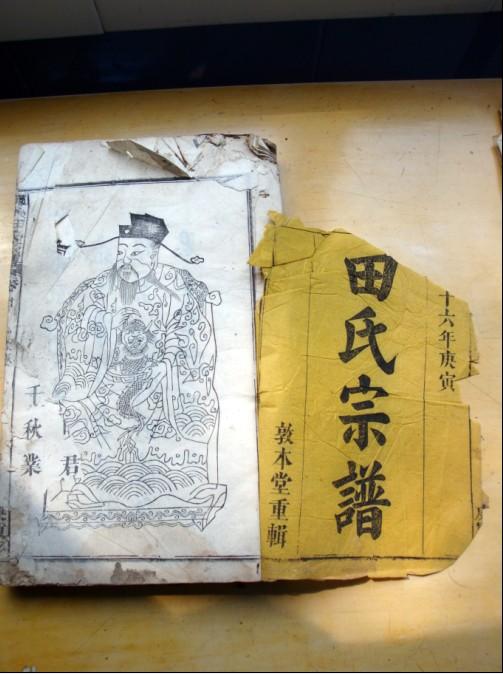 十六年庚寅
田氏宗譜
敦本堂重輯
君
千秋業